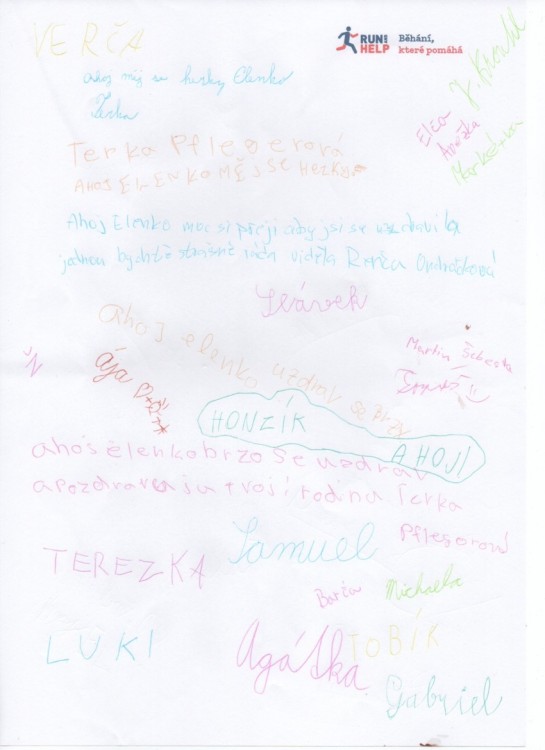 VERČA
RUN AND HELP
Běhání,
které pomáhá
ahoj měj se hesky Elenko
Terka
Ela
Anežka
Markétka
Terka Pflegerová
AHOJ ELENKO MĚJ SE HEZKY
Ahoj Elenko moc si přeji aby jsi se uzdravila
jednou bych tě strašně ráda viděla Barča Ondráčková
Slávek
ahoj elenko uzdrav se brzy
Martin Šebesta
Š.N
ája
HONZÍK
AHOJ!
ahoj elenko brzo se uzdrav
a pozdravuju tvoji rodinu Terka
Pflegerová
Samuel
TEREZKA
Barča
Michaela
LUKI
Agátka
TOBÍK
Gabriel